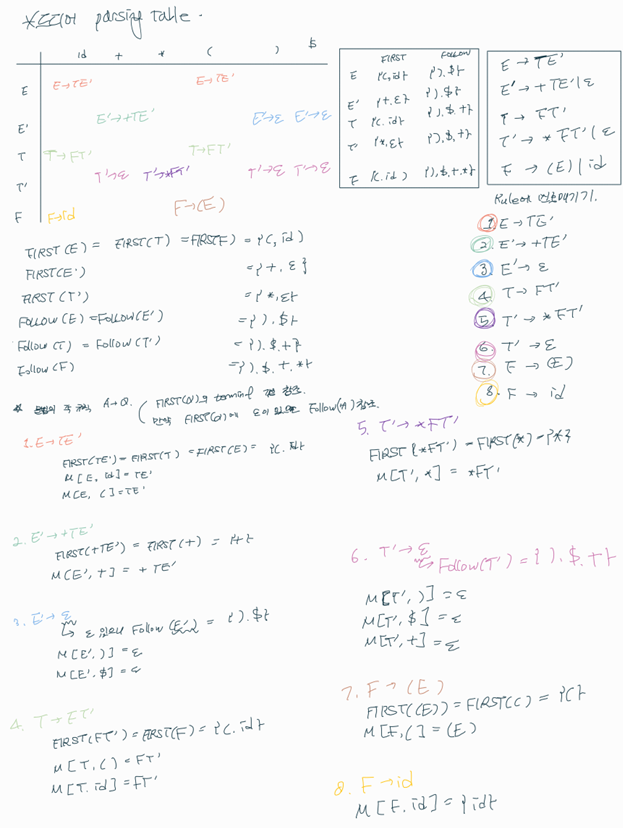 *LL(1) parsing table.
id + * ( ) $
E E→TE' E→TE'
E' E'→+TE' E'→ε E'→ε
T T→FT' T→FT'
T' T'→ε T'→*FT' T'→ε T'→ε
F F→id F→(E)
FIRST FOLLOW
E {(,id} {).$}
E' {+.ε} {).$}
T {(.id} {).$.+}
T' {*,ε} {).$,+}
F {(.id} {),$,+,*}
E → TE'
E' → +TE' | ε
T → FT'
T' → *FT' | ε
F → (E) | id
FIRST(E) = FIRST(T) = FIRST(F) = {(, id}
FIRST(E') = {+, ε}
FIRST(T') = {*,ε}
Follow(E) = Follow(E') = {).$}
Follow(T) = Follow(T') = {).$.+}
Follow(F) = {).$.+.*}
Rule에 번호매기기.
1. E→TE'
2. E'→+TE'
3. E'→ε
4. T→FT'
5. T'→*FT'
6. T'→ε
7. F→(E)
8. F→id
* 문법의 각 규칙 A→α. ( FIRST(α)의 terminal 참조.
만약 FIRST(α)에 ε이 있으면 Follow(A) 참조.
1. E→TE'
FIRST(TE') = FIRST(T) = FIRST(F) = {(. id}
M[E, id] = TE'
M[E, (] = TE'
2. E'→+TE'
FIRST(+TE') = FIRST(+) = {+}
M[E', +] = +TE'
3. E'→ε
ε 있으니 Follow(E') = {).$}
M[E', )] = ε
M[E', $] = ε
4. T→FT'
FIRST(FT') = FIRST(F) = {(.id}
M[T, (] = FT'
M[T. id] = FT'
5. T'→*FT'
FIRST(*FT') = FIRST(*) = {*}
M[T', *] = *FT'
6. T'→ε
Follow(T') = {).$.+}
M[T', )] = ε
M[T', $] = ε
M[T', +] = ε
7. F→(E)
FIRST((E)) = FIRST(() = {(}
M[F, (] = (E)
8. F→id
M[F. id] = {id}